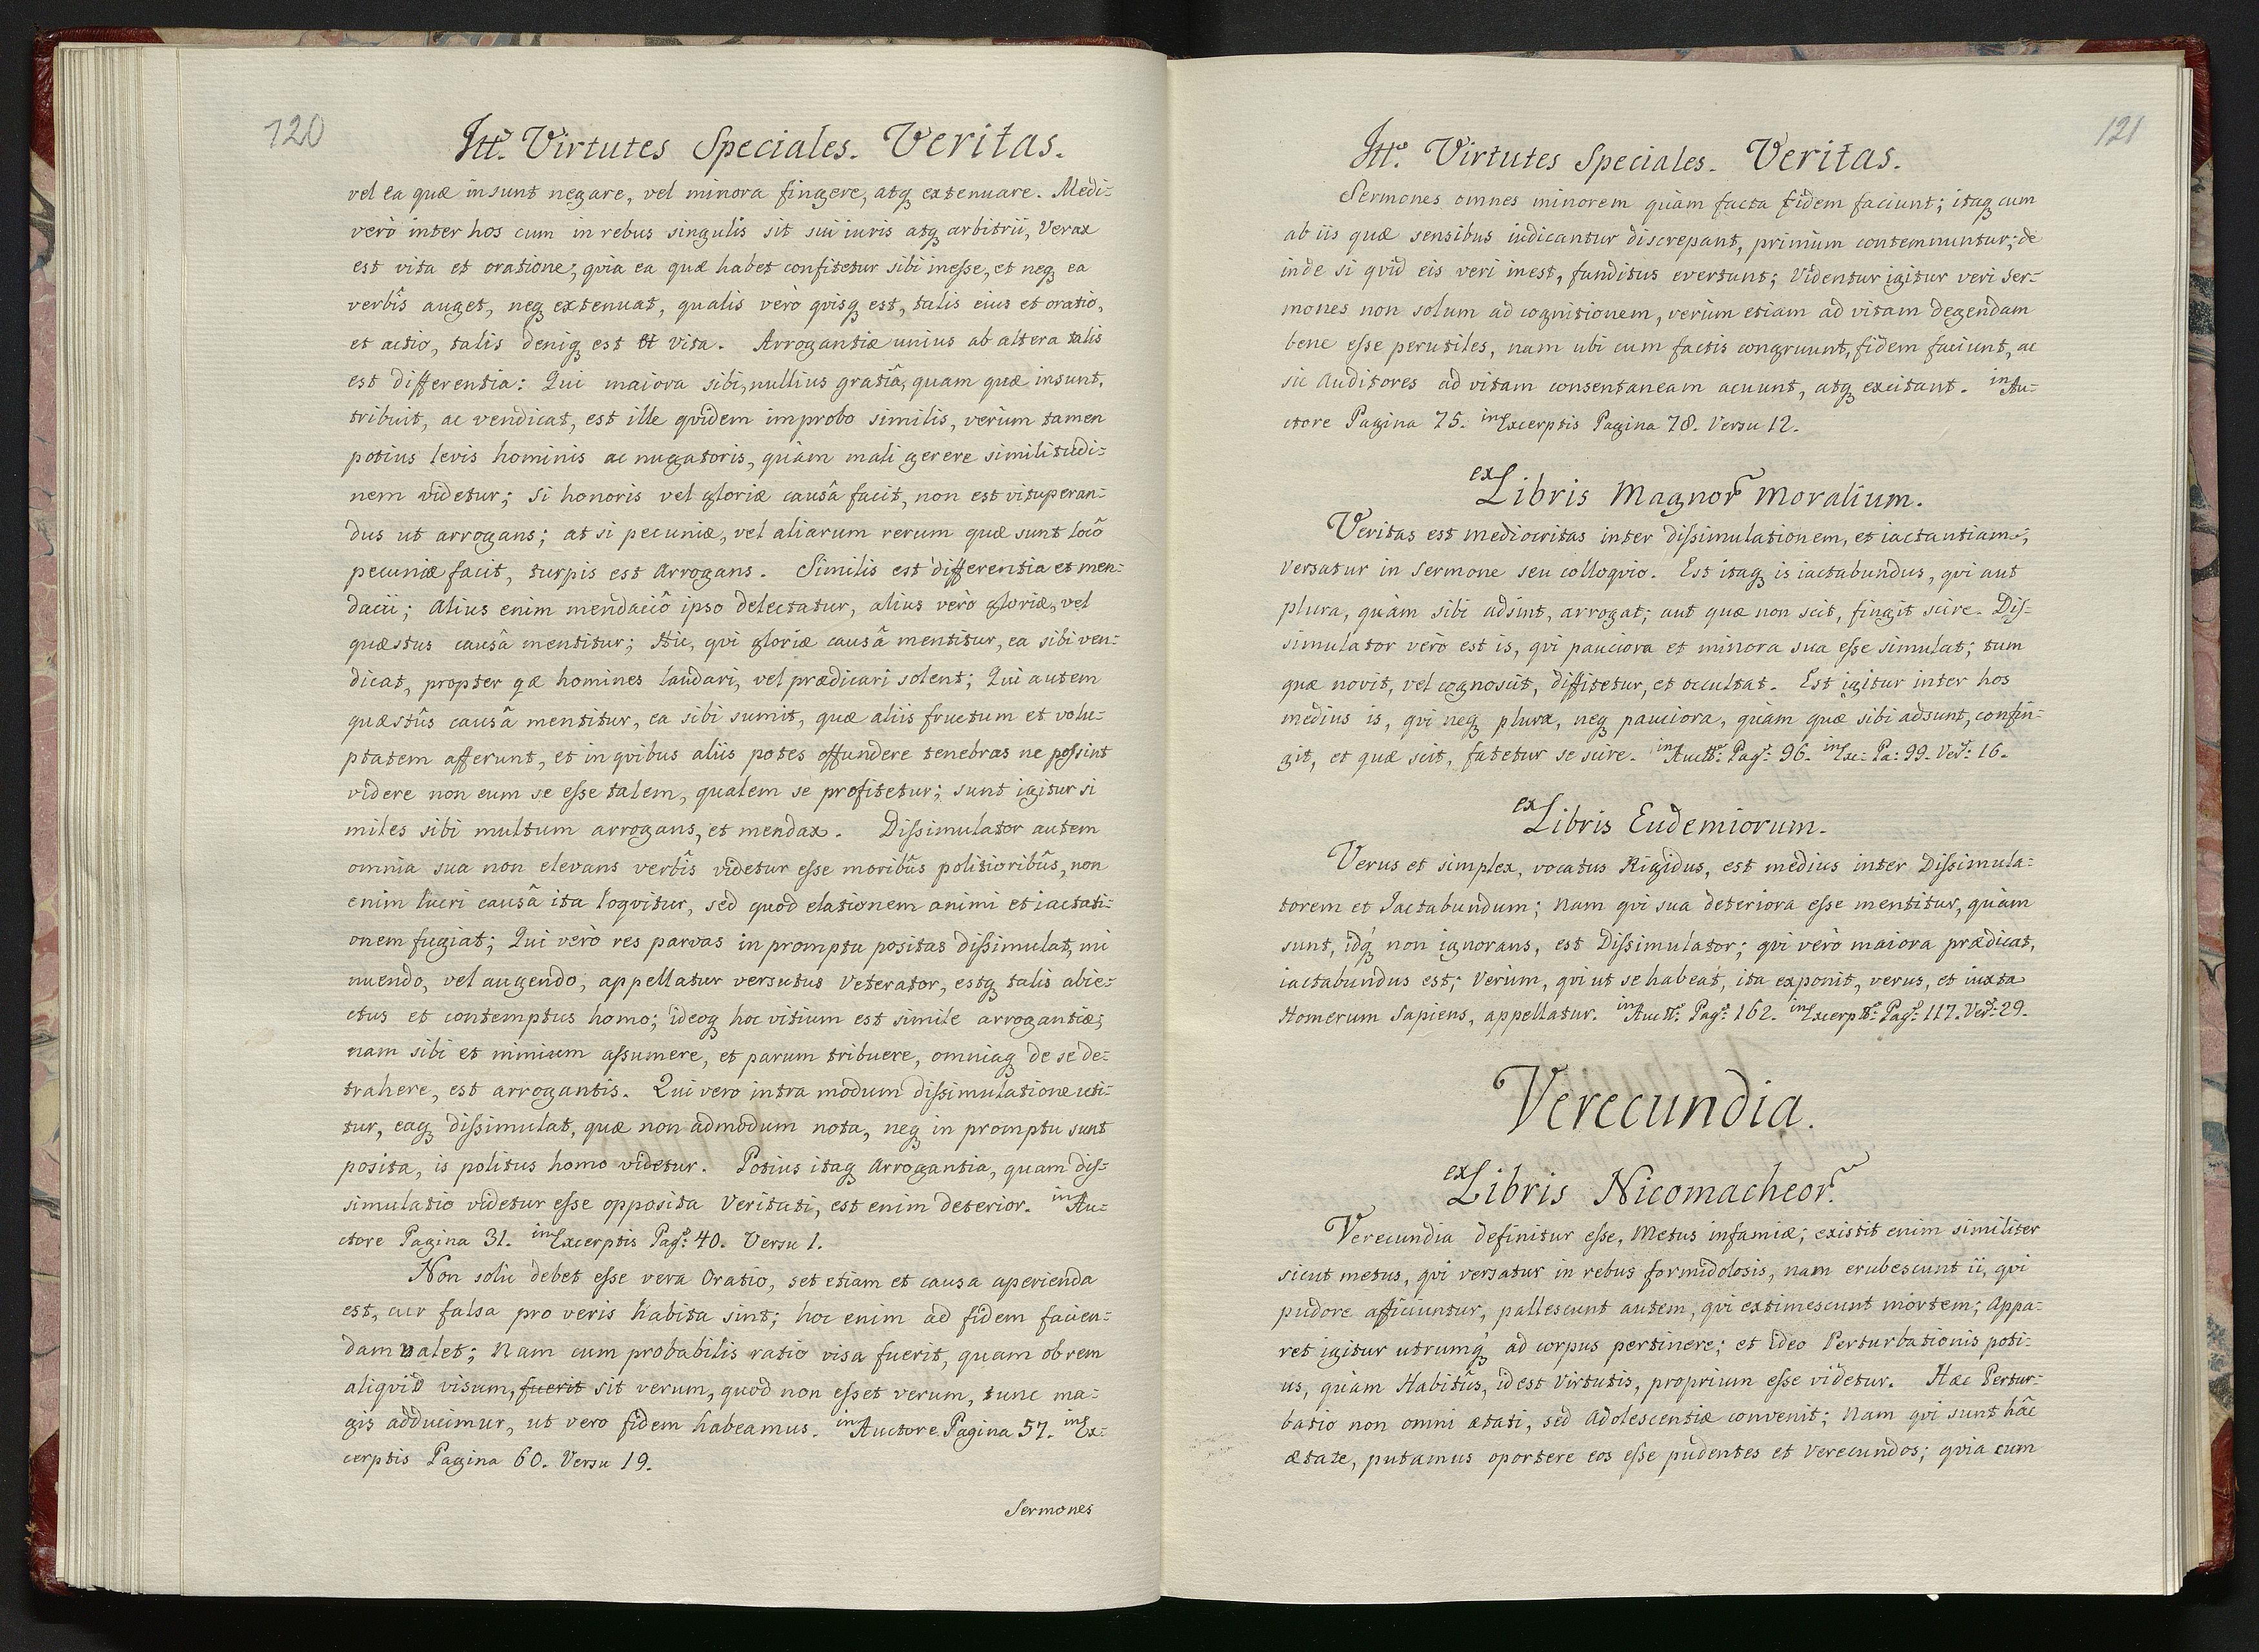 120
Itt.º Virtutes Speciales. Veritas.
vel ea quæ insunt negare, vel minora fingere, atq₃ extenuare. Medi=
verò inter hos cum in rebus singulis sit sui iuris atq₃ arbitrii, Verax
est vita et oratione; qvia ea quæ habet confitetur sibi inesse, et neq₃ ea
verbîs auget, neq₃ extenuat, qualis verò qvisq₃ est, talis eius et oratio,
et actio, talis deniq₃ est et vita. Arrogantiæ unius ab altera talis
est differentia: Qui maiora sibi, nullius gratiâ, quam quæ insunt,
tribuit, ac vendicat, est ille qvidem improbo similis, verùm tamen
potius levis hominis ac nugatoris, quàm mali gerere similitudi=
nem videtur; Si honoris vel gloriæ causâ facit, non est vituperan=
dus ut arrogans; at si pecuniæ, vel aliarum rerum quæ sunt locô
pecuniæ facit, turpis est Arrogans. Similis est differentia et men=
dacii; Alius enim mendaciô ipso delectatur, alius verò gloriæ, vel
quæstus causâ mentitur; Hic, qvi gloriæ causâ mentitur, ea sibi ven=
dicat, propter qæ homines laudari, vel prædicari solent; Qui autem
quæstûs causâ mentitur, ea sibi sumit, quæ aliis fructum et volu=
ptatem afferunt, et in qvibus aliis potes offundere tenebras ne possint
videre non eum se esse talem, qualem se profitetur; sunt igitur si
miles sibi multum arrogans, et mendax. Dissimulator autem
omnia sua non elevans verbîs videtur esse moribûs politioribûs, non
enim lucri causâ ita loqvitur, sed quod elationem animi et iactati=
onem fugiat; Qui verò res parvas in promptu positas dissimulat, mi
nuendo, vel augendo, appellatur versutus Veterator, estq₃ talis abie=
ctus et contemptus homo; ideoq₃ hoc vitium est simile arrogantiæ;
nam sibi et nimium assumere, et parum tribuere, omniaq₃ de se de=
trahere, est arrogantis. Qui vero intra modum dissimulatione uti=
tur, eaq₃ dissimulat, quæ non admodum nota, neq₃ in promptu sunt
posita, is politus homo videtur. Potius itaq₃ Arrogantia, quam dis=
simulatio videtur esse opposita Veritati, est enim deterior. in Au=
ctore Pagina 31. in Excerptis Pagª: 40. Versu 1.
Non solũ debet esse vera Oratio, set etiam et causa aperienda
est, cur falsa pro veris habita sint; hoc enim ad fidem facien=
dam valet; Nam cum probabilis ratio visa fuerit, quam ob rem
aliqvid visum, fuerit sit verum, quod non esset verum, tunc ma=
gis adducimur, ut vero fidem habeamus. in Auctore Pagina 57. in Ex=
cerptis Pagina 60. Versu 19.
Sermones
121
Itt.º Virtutes Speciales. Veritas.
Sermones omnes minorem quàm facta fidem faciunt; itaq₃ cum
ab iis quæ sensibus iudicantur discrepant, primùm contemnuntur; de
inde si qvid eis veri inest, funditus evertunt; Videntur igitur veri Ser=
mones non solum ad cognitionem, verùm etiam ad vitam degendam
bene esse perutiles, nam ubi cum factis congruunt, fidem faciunt, ac
sic Auditores ad vitam consentaneam acuunt, atq₃ excitant. in Au=
ctore Pagina 75. in Excerptis Pagina 78. Versu 12.
ex Libris Magnor̃ Moralium.
Veritas est mediocritas inter dissimulationem, et iactantiam;
versatur in Sermone seu colloqvio. Est itaq₃ is iactabundus, qvi aut
plura, quàm sibi adsint, arrogat; aut quæ non scit, fingit scire. Dis=
simulator verò est is, qvi pauciora et minora sua esse simulat; tum
quæ novit, vel cognoscit, diffitetur, et occultat. Est igitur inter hos
medius is, qvi neq₃ plura, neq₃ pauciora, quàm quæ sibi adsunt, confin=
git, et quæ scit, fatetur se scire. in Auctº: Pagª: 96. in Exc: Pa: 99. Verˢ: 16.
ex Libris Eudemiorum.
Verus et simplex, vocatus Rigidus, est medius inter Dissimula=
torem et Iactabundum; Nam qvi sua deteriora esse mentitur, quàm
sunt, idq́₃ non ignorans, est Dissimulator; qvi verò maiora prædicat,
iactabundus est; Verùm, qvi ut se habeat, ita exponit, verus, et iuxta
Homerum Sapiens, appellatur. in Auctº: Pagª: 162. in Excerptˢ: Pagª: 117. Verˢ: 29.
Verecundia.
ex Libris Nicomacheor̃.
Verecundia definitur esse, Metus infamiæ; existit enim similiter
sicut metus, qvi versatur in rebus formidolosis, nam erubescunt ii, qvi
pudore afficiuntur, pallescunt autem, qvi extimescunt mortem; Appa=
ret igitur utrumq́₃ ad corpus pertinere; et ideo Perturbationis poti=
us, quàm Habitûs, id est Virtutis, proprium esse videtur. Hæc Pertur=
batio non omni ætati, sed Adolescentiæ convenit; Nam qvi sunt hâc
ætate, putamus oportere eos esse pudentes et Verecundos; qvia cum